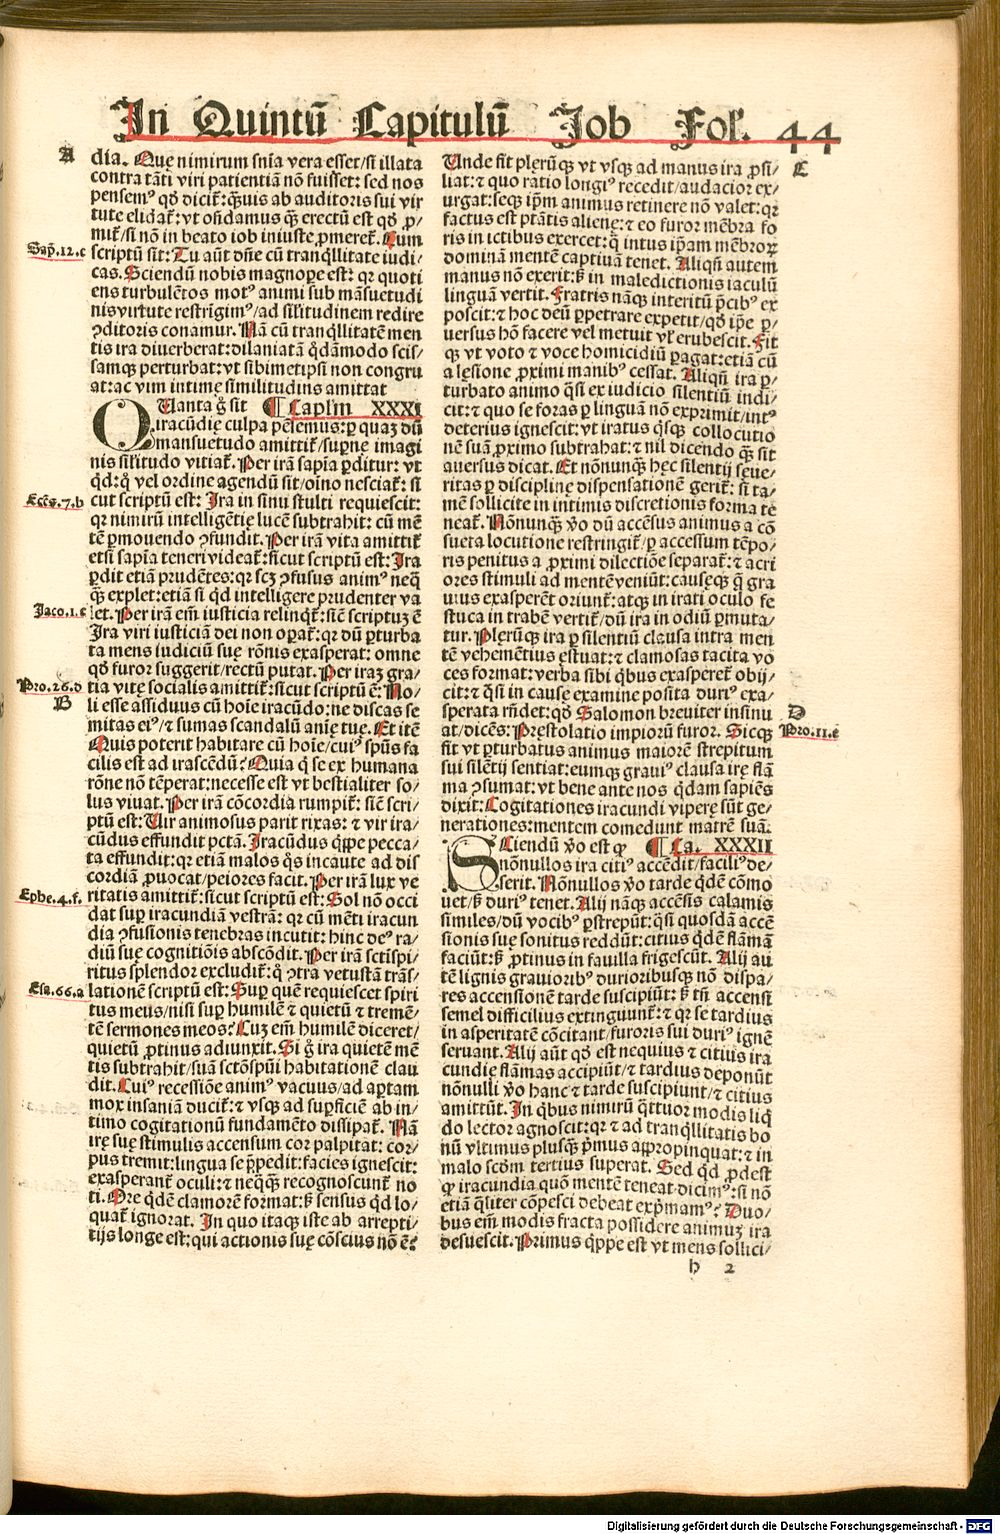 In Quintū Capitulū Job Fol. 44
A
dia. Que nimirum snīa vera esset/si illata
contra tāti viri patientiā nō fuisset: sed nos
pensemꝰ qđ dicit̃: q̃uis ab auditoris sui vir
tute elidat̃: vt oñdamus q̃ȝ erectū est qđ ꝓ/
mit̃/si nō in beato iob iniuste ꝓmeret̃. Cum
Sap.12.c
scriptū sit: Tu aūt dñe cū tranq̈llitate iudi/
cas. Sciendū nobis magnope est: qꝛ quoti
ens turbulētos motꝰ animi sub māsuetudi
nis virtute restrīgimꝰ/ad silitudinem redire
ꝯditoris conamur. Nā cū tranq̈llitatē men
tis ira diuerberat: dilaniatā q̊dāmodo scis/
samqꝫ perturbat: vt sibimetipsi non congru
at: ac vim intime similitudinis amittat
Quanta g̊ sit ¶ Caplm XXXI
iracūdię culpa pēsemus: ꝑ quaꝫ dū
mansuetudo amittit̃/supnę imagi
nis silitudo vitiat̃. Per irā sapīa ꝑditur: vt
qd: q̊ vel ordine agendū sit/oīno nesciat̃: si
Eccs.7.b
cut scriptū est: Ira in sinu stulti requiescit:
qꝛ nimirū intelligētię lucē subtrahit: cū mē
tē ꝑmouendo ꝯfundit. Per irā vita amittit̃
etsi sapīa teneri videat̃: sicut scriptū est: Ira
ꝑdit etiā prudētes: qꝛ scꝫ ꝯfusus animꝰ neq̄
q̃ȝ explet: etiā si qd intelligere prudenter va
Jaco.1.c
let. Per irā em̄ iusticia relinq̈t̃: sicē scriptuꝫ ē
Ira viri iusticiā dei non opat̃: qꝛ dū ꝑturba
ta mens iudiciū sue rōnis exasperat: omne
qđ furor suggerit/rectū putat. Per iraꝫ gra/
Pro.26.d
tia vitę socialis amittit̃: sicut scriptū ē: No/
B
li esse assiduus cū hoīe iracūdo: ne discas se
mitas eiꝰ/⁊ sumas scandalū aīę tuę. Et itē
Quis poterit habitare cū hoīe/cuiꝰ spūs fa
cilis est ad irascēdū? Quia q̇ se ex humana
rōne nō tēperat: necesse est vt bestialiter so/
lus viuat. Per irā cōcordia rumpit̃: sicē scri/
ptū est: Vir animosus parit rixas: ⁊ vir ira/
cūdus effundit pctā. Iracūdus q̈ppe pecca/
ta effundit: qꝛ etiā malos q̊s incaute ad dis
cordiā ꝓuocat/peiores facit. Per irā lux ve
Ephe.4.f.
ritatis amittit̃: sicut scriptū est: Sol nō occi
dat sup iracundiā vestrā: qꝛ cū mēti iracun
dia ꝯfusionis tenebras incutit: hinc deꝰ ra/
diū sue cognitiōis abscōdit. Per irā sctīspi/
ritus splendor excludit̃: q̊ ꝯtra vetustā trās/
Esa.66.a
lationē scriptū est: Sup quē requiescet spiri
tus meus/nisi sup humilē ⁊ quietū ⁊ tremē/
tē sermones meos? Cuꝫ em̄ humilē diceret/
quietū ꝓtinus adiunxit. Si g̊ ira quietē mē
tis subtrahit/suā sctōspūi habitationē clau
dit. Cuiꝰ recessiōe animꝰ vacuus/ad aptam
mox insaniā ducit̃: ⁊ vsqꝫ ad supficiē ab in/
timo cogitationū fundamēto dissipat̃. Nā
irę suę stimulis accensum cor palpitat: cor/
pus tremit: lingua se p̄pedit: facies ignescit:
exasperant̃ oculi: ⁊ neq̄q̃ȝ recognoscunt̃ no
ti. Ore q̈dē clamorē format: sꝫ sensus qd lo/
quat̃ ignorat. In quo itaqꝫ iste ab arrepti/
tijs longe est: qui actionis suę cōscius nō ē?
Unde fit plerūqꝫ vt vsqꝫ ad manus ira ꝓsi/
C
liat: ⁊ quo ratio longiꝰ recedit/audacior ex/
urgat: seqꝫ ip̄m animus retinere nō valet: qꝛ
factus est ptātis aliene: ⁊ eo furor mēbra fo
ris in ictibus exercet: q̊ intus ip̄am mēbroꝝ
dominā mentē captiuā tenet. Aliqñ autem
manus nō exerit: sꝫ in maledictionis iaculū
linguā vertit. Fratris nāqꝫ interitū p̄cibꝰ ex
poscit: ⁊ hoc deū ꝑpetrare expetit/qđ ip̄e ꝑ/
uersus hō facere vel metuit vl̃ erubescit. Fit
qꝫ vt voto ⁊ voce homicidiū ꝑagat: etiā cū
a lesione ꝓximi manibꝰ cessat. Aliqñ ira ꝑ/
turbato animo q̄si ex iudicio silentiū indi/
cit: ⁊ quo se foras ꝑ linguā nō exprimit/intꝰ
deterius ignescit: vt iratus q̇sqꝫ collocutio
nē suā ꝓximo subtrahat: ⁊ nil dicendo q̃ȝ sit
auersus dicat. Et nōnunq̃ȝ hec silentij seue/
ritas ꝑ discipline dispensationē gerit̃: si ta/
mē sollicite in intimis discretionis forma te
neat̃. Nōnunq̃ȝ v̊o dū accēsus animus a cō
sueta locutione restringit̃/ꝑ accessum tēpo/
ris penitus a ꝓximi dilectiōe separat̃: ⁊ acri
ores stimuli ad mentē veniūt: causęqꝫ q̄ gra
uius exasperēt oriunt̃: atqꝫ in irati oculo fe
stuca in trabē vertit̃/dū ira in odiū ꝑmuta/
tur. Plerūqꝫ ira ꝑ silentiū clausa intra men
tē vehemētius ęstuat: ⁊ clamosas tacita vo
ces format: verba sibi q̈bus exasperet̃ obij/
cit: ⁊ q̄si in cause examine posita duriꝰ exa/
sperata rñdet: qđ Salomon breuiter insinu
D
at/dicēs: Pręstolatio impiorū furor. Sicqꝫ
Pro.11.c
fit vt ꝑturbatus animus maiorē strepitum
sui silētij sentiat: eumqꝫ grauiꝰ clausa irę flā
ma ꝯsumat: vt bene ante nos q̇dam sapiēs
dixit: Cogitationes iracundi viperę sūt ge/
nerationes: mentem comedunt matrē suā.
SCiendū v̊o est ꝙ ¶ Ca. XXXII
nōnullos ira citiꝰ accēdit/faciliꝰ de/
serit. Nōnullos v̊o tarde q̈dē cōmo
uet/sꝫ duriꝰ tenet. Alij nāqꝫ accēsis calamis
similes/dū vocibꝰ ꝑstrepūt: q̄si quosdā accē
sionis suę sonitus reddūt: citius q̈dē flāmā
faciūt: sꝫ ꝓtinus in fauilla frigescūt. Alij au
tē lignis grauioribꝰ durioribusqꝫ nō dispa/
res accensionē tarde suscipiūt: sꝫ tñ accensi
semel difficilius extinguunt̃: ⁊ qꝛ se tardius
in asperitatē cōcitant/furoris sui duriꝰ ignē
seruant. Alij aūt qđ est nequius ⁊ citius ira
cundie flāmas accipiūt/⁊ tardius deponūt
nōnulli v̊o hanc ⁊ tarde suscipiunt/⁊ citius
amittūt. In q̈bus nimirū q̈ttuor modis liq̇
do lector agnoscit: qꝛ ⁊ ad tranq̈llitatis bo
nū vltimus plusq̃ȝ p̄mus appropinquat: ⁊ in
malo scd̄m tertius superat. Sed qd ꝓdest
ꝙ iracundia quō mentē teneat dicimꝰ: si nō
etiā q̄liter cōpesci debeat exp̄mamꝰ? Duo/
bus em̄ modis fracta possidere animuꝫ ira
desuescit. Primus q̈ppe est vt mens sollici/
h 2
Digitalisierung gefördert durch die Deutsche Forschungsgemeinschaft - DFG